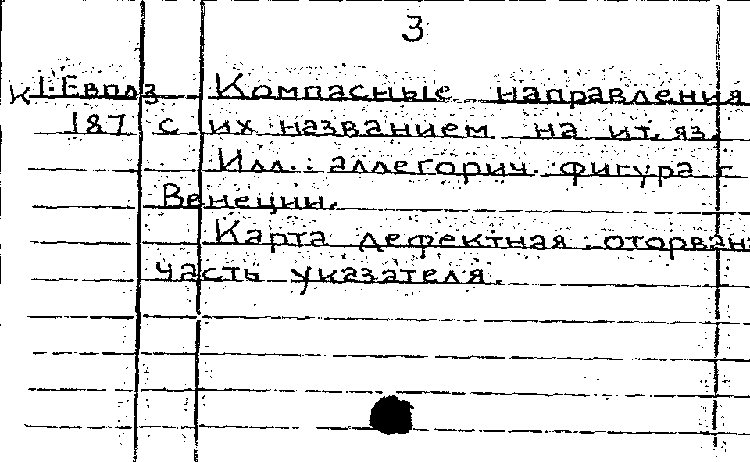 3
К 1-Евплз Компасные направления
187 с их названием на ит. яз.
Илл.: аллегорич. фигура г
Венеции.
Карта дефектная: оторван
часть указателя.